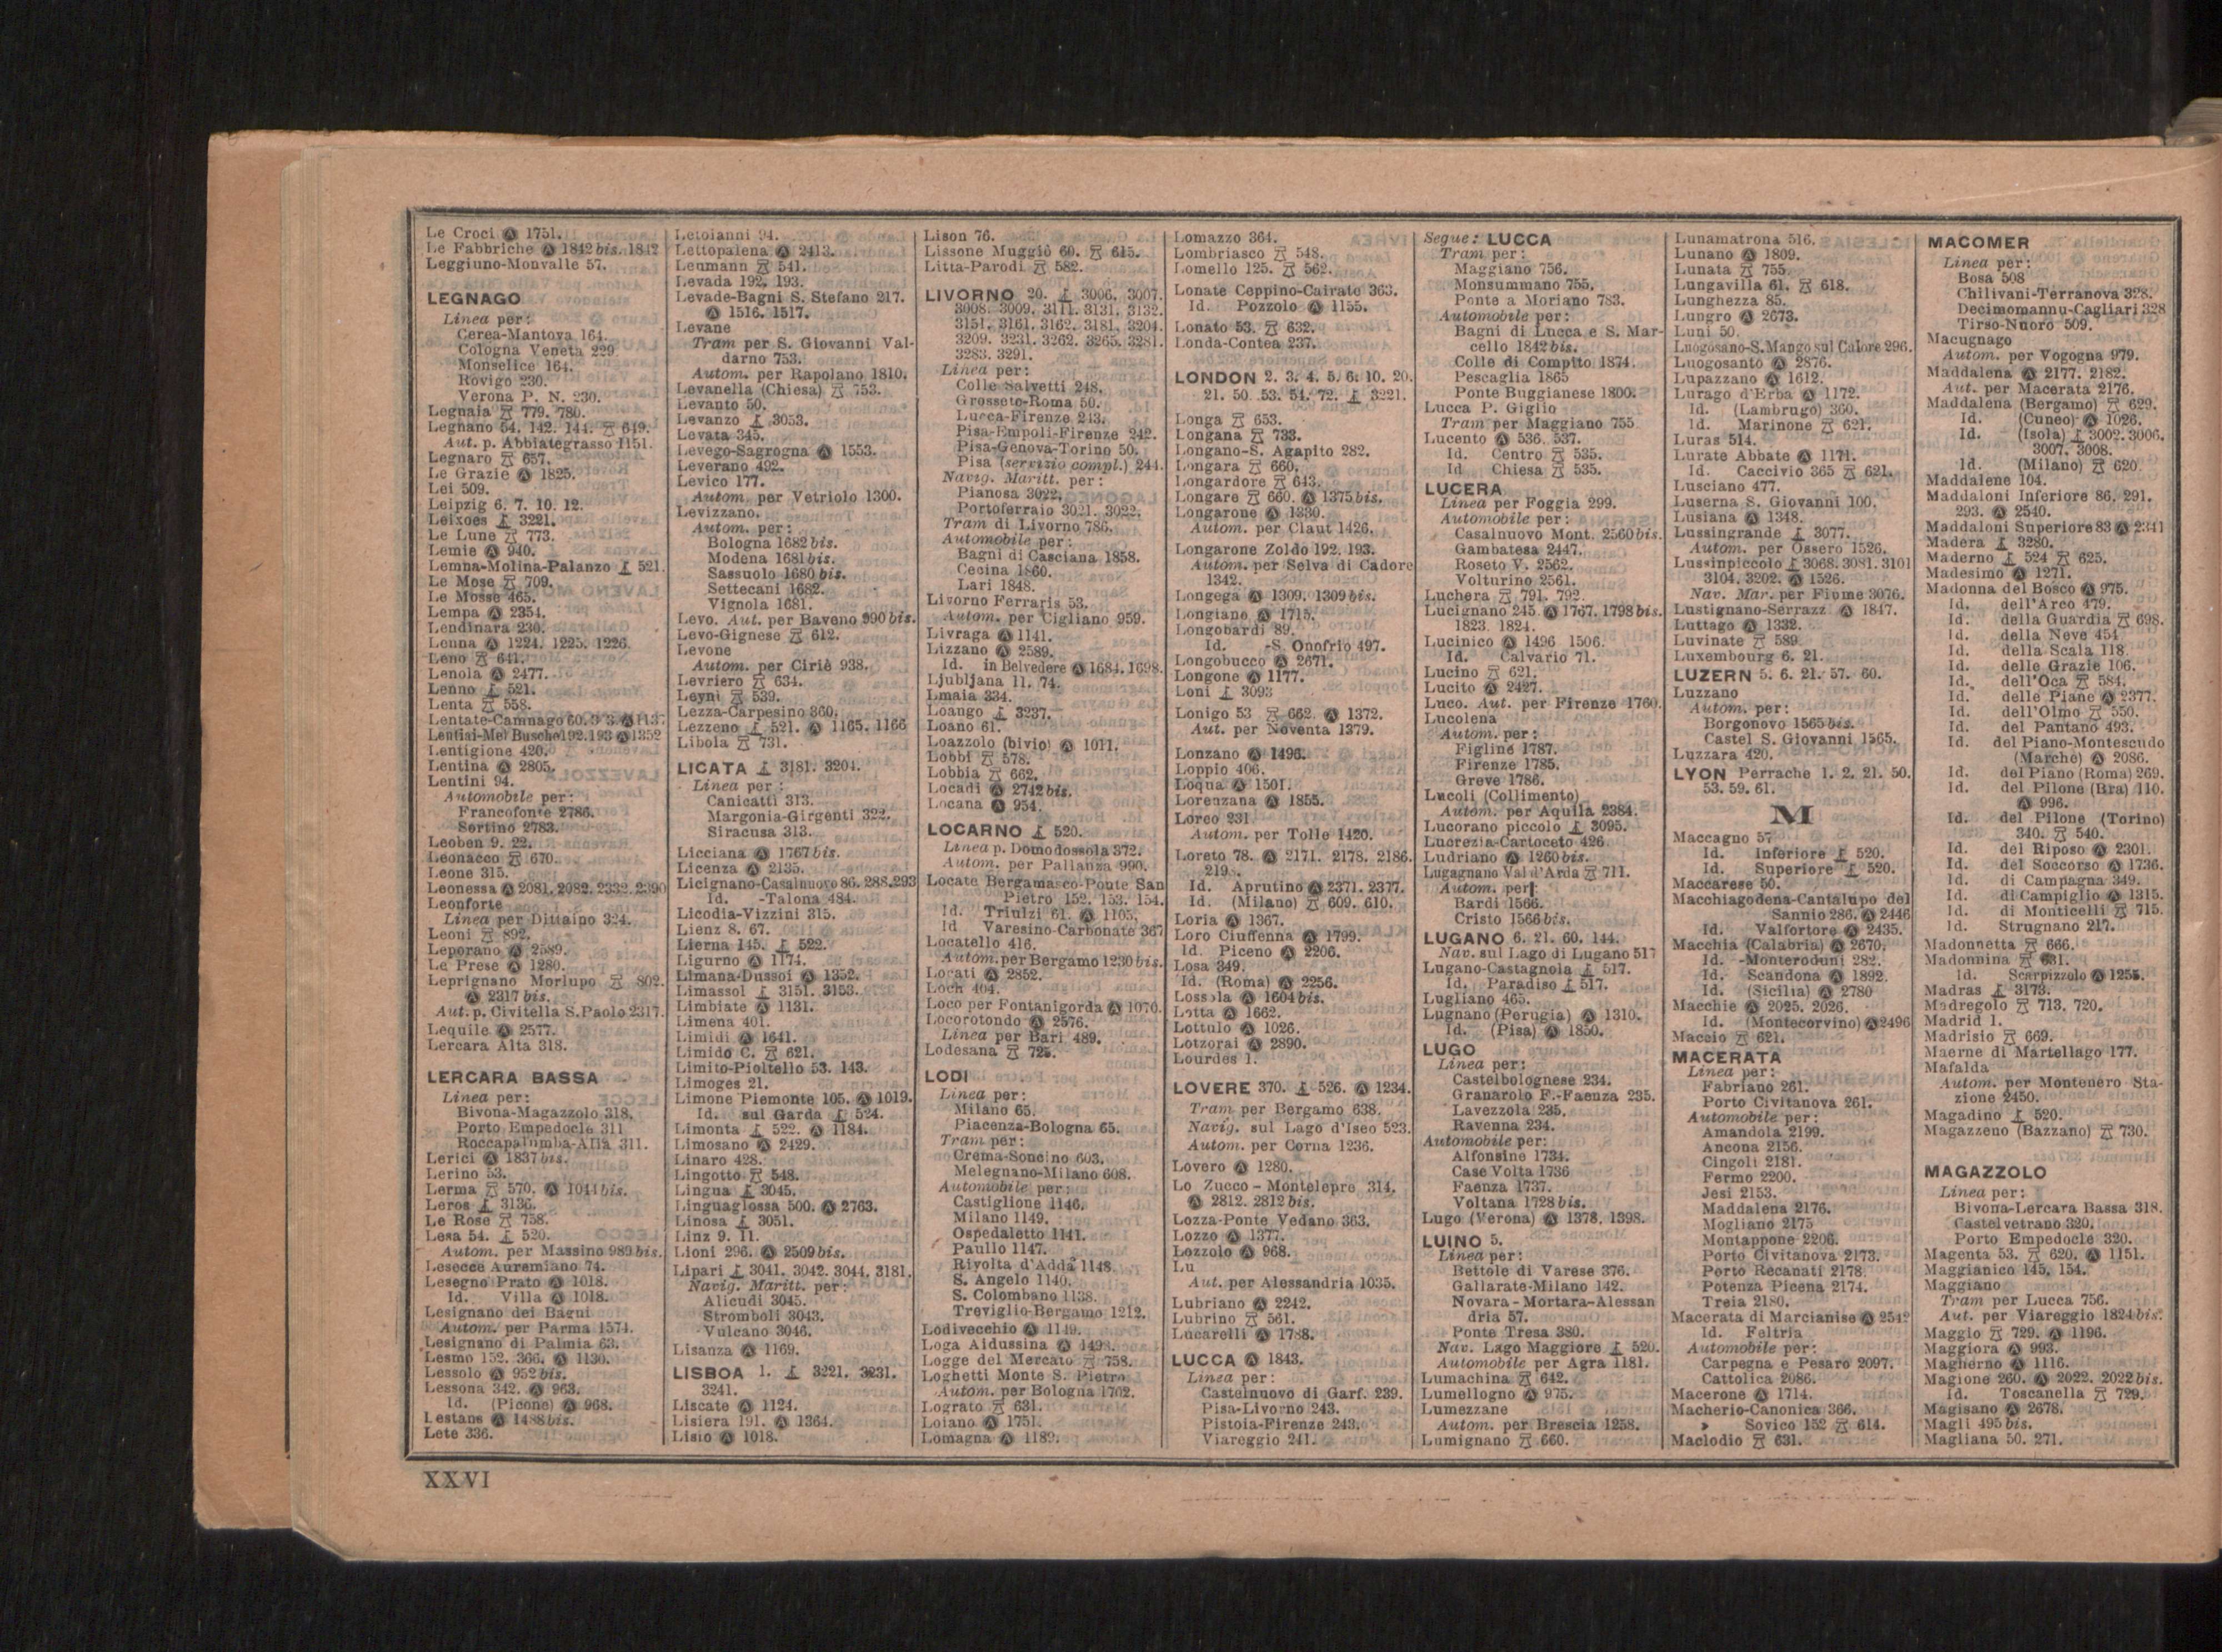 Le Croci Ⓐ 1751.
Le Fabbriche Ⓐ 1842 bis. 1842
Leggiuno-Monvalle 57.
LEGNAGO
Linea per:
Cerea-Mantova 164.
Cologna Veneta 229.
Monselice 164.
Rovigo 230.
Verona P. N. 230.
Legnaia 779. 780.
Legnano 54. 142. 144. 649.
Aut. p. Abbiategrasso 1151.
Legnaro 657.
Le Grazie Ⓐ 1825.
Lei 509.
Leipzig 6. 7. 10. 12.
Leixoes 3221.
Le Lune 773.
Lemie Ⓐ 940.
Lemna-Molina-Palanzo 521.
Le Mose 709.
Le Mosse 465.
Lempa Ⓐ 2354.
Lendinara 230.
Lenna Ⓐ 1224. 1225. 1226.
Leno 641.
Lenola Ⓐ 2477.
Lenno 521.
Lenta 558.
Lentate-Camnago 60.
Lentiai-Mel Busche 192.193 Ⓐ 1352
Lentigione 420.
Lentina Ⓐ 2805.
Lentini 94.
Automobile per:
Francofonte 2786.
Sortino 2783.
Leoben 9. 22.
Leonacco 670.
Leone 315.
Leonessa Ⓐ 2081. 2082. 2332. 2390
Leonforte
Linea per Dittaino 324.
Leoni 892.
Leporano Ⓐ 2589.
Le Prese Ⓐ 1280.
Leprignano Morlupo 802.
Ⓐ 2317 bis.
Aut. p. Civitella S. Paolo 2317.
Lequile Ⓐ 2577.
Lercara Alta 318.
LERCARA BASSA
Linea per:
Bivona-Magazzolo 318.
Porto Empedocle 311
Roccapalumba-Alia 311.
Lerici Ⓐ 1837 bis.
Lerino 53.
Lerma 570. Ⓐ 1044 bis.
Leros 3136.
Le Rose 758.
Lesa 54. 520.
Autom. per Massino 989 bis.
Lesecce Auremiano 74.
Lesegno Prato Ⓐ 1018.
Id. Villa Ⓐ 1018.
Lesignano dei Bagni
Autom. per Parma 1574.
Lesignano di Palmia 63.
Lesmo 152. 366. Ⓐ 1130.
Lessolo Ⓐ 952 bis.
Lessona 342. Ⓐ 963.
Id. (Picone) Ⓐ 968.
Lestans Ⓐ 1488 bis.
Lete 336.
Letoianni 94.
Lettopalena Ⓐ 2413.
Leumann 541.
Levada 192. 193.
Levade-Bagni S. Stefano 217.
Ⓐ 1516. 1517.
Levane
Tram per S. Giovanni Val-
darno 753.
Autom. per Rapolano 1810.
Levanella (Chiesa) 753.
Levanto 50.
Levanzo 3053.
Levata 345.
Levego-Sagrogna Ⓐ 1553.
Leverano 492.
Levico 177.
Autom. per Vetriolo 1300.
Levizzano.
Autom. per:
Bologna 1682 bis.
Modena 1681 bis.
Sassuolo 1680 bis.
Settecani 1682.
Vignola 1681.
Levo. Aut. per Baveno 990 bis.
Levo-Gignese 612.
Levone
Autom. per Ciriè 938.
Levriero 634.
Leyni 539.
Lezza-Carpesino 360.
Lezzeno 521. Ⓐ 1165. 1166
Libola 731.
LICATA 3181. 3204.
Linea per:
Canicattì 313.
Margonia-Girgenti 322.
Siracusa 313.
Licciana Ⓐ 1767 bis.
Licenza Ⓐ 2135.
Licignano-Casalnuovo 86. 288.293
Id. -Talona 484.
Licodia-Vizzini 315.
Lienz 8. 67.
Lierna 145. 522.
Ligurno Ⓐ 1174.
Limana-Dussoi Ⓐ 1352.
Limassol 3151. 3153.
Limbiate Ⓐ 1131.
Limena 401.
Limidi Ⓐ 1641.
Limido C. 621.
Limito-Pioltello 53. 143.
Limoges 21.
Limone Piemonte 105. Ⓐ 1019.
Id. sul Garda 524.
Limonta 522. Ⓐ 1184.
Limosano Ⓐ 2429.
Linaro 428.
Lingotto 548.
Lingua 3045.
Linguaglossa 500. Ⓐ 2763.
Linosa 3051.
Linz 9. 11.
Lioni 296. Ⓐ 2509 bis.
Lipari 3041. 3042. 3044. 3181.
Navig. Maritt. per:
Alicudi 3045.
Stromboli 3043.
Vulcano 3046.
Lisanza Ⓐ 1169.
LISBOA 1. 3221. 3231.
3241.
Liscate Ⓐ 1124.
Lisiera 191. Ⓐ 1364.
Lisio Ⓐ 1018.
Lison 76.
Lissone Muggiò 60. 615.
Litta-Parodi 582.
LIVORNO 20. 3006. 3007.
3008. 3009. 3111. 3131. 3132.
3151. 3161. 3162. 3181. 3204.
3209. 3231. 3262. 3265. 3281.
3283. 3291.
Linea per:
Colle Salvetti 248.
Grosseto-Roma 50.
Lucca-Firenze 243.
Pisa-Empoli-Firenze 242.
Pisa-Genova-Torino 50.
Pisa (servizio compl.) 244.
Navig. Maritt. per:
Pianosa 3022.
Portoferraio 3021. 3022.
Tram di Livorno 786.
Automobile per:
Bagni di Casciana 1858.
Cecina 1860.
Lari 1848.
Livorno Ferraris 53.
Autom. per Cigliano 959.
Livraga Ⓐ 1141.
Lizzano Ⓐ 2589.
Id. in Belvedere Ⓐ 1684. 1698.
Ljubljana 11. 74.
Lmaia 334.
Loango 3237.
Loano 61.
Loazzolo (bivio) Ⓐ 1011.
Lobbi 578.
Lobbia 662.
Locadi Ⓐ 2742 bis.
Locana Ⓐ 954.
LOCARNO 520.
Linea p. Domodossola 372.
Autom. per Pallanza 990.
Locate Bergamasco-Ponte San
Pietro 152. 153. 154.
Id. Triulzi 61. Ⓐ 1105.
Id Varesino-Carbonate 367
Locatello 416.
Autom. per Bergamo 1230 bis.
Locati Ⓐ 2852.
Loch 404.
Loco per Fontanigorda Ⓐ 1070.
Locorotondo Ⓐ 2576.
Linea per Bari 489.
Lodesana 725.
LODI
Linea per:
Milano 65.
Piacenza-Bologna 65.
Tram per:
Crema-Soncino 603.
Melegnano-Milano 608.
Automobile per:
Castiglione 1146.
Milano 1149.
Ospedaletto 1141.
Paullo 1147.
Rivolta d'Adda 1148.
S. Angelo 1140.
S. Colombano 1138.
Treviglio-Bergamo 1212.
Lodivecchio Ⓐ 1149.
Loga Aidussina Ⓐ 1498.
Logge del Mercato 758.
Loghetti Monte S. Pietro
Autom. per Bologna 1702.
Lograto 631.
Loiano Ⓐ 1751.
Lomagna Ⓐ 1189.
Lomazzo 364.
Lombriasco 548.
Lomello 125. 562.
Lonate Ceppino-Cairate 363.
Id. Pozzolo Ⓐ 1155.
Lonato 53. 632.
Londa-Contea 237.
LONDON 2. 3. 4. 5. 6. 10. 20.
21. 50. 53. 54. 72. 3221.
Longa 653.
Longana 733.
Longano-S. Agapito 282.
Longara 660.
Longardore 643.
Longare 660. Ⓐ 1375 bis.
Longarone Ⓐ 1330.
Autom. per Claut 1426.
Longarone Zoldo 192. 193.
Autom. per Selva di Cadore
1342.
Longega Ⓐ 1309. 1309 bis.
Longiano Ⓐ 1715.
Longobardi 89.
Id. -S. Onofrio 497.
Longobucco Ⓐ 2671.
Longone Ⓐ 1177.
Loni 3093
Lonigo 53 662. Ⓐ 1372.
Aut. per Noventa 1379.
Lonzano Ⓐ 1496.
Loppio 406.
Loqua Ⓐ 1501.
Lorenzana Ⓐ 1855.
Loreo 231
Autom. per Tolle 1420.
Loreto 78. Ⓐ 2171. 2178. 2186.
Id. Aprutino Ⓐ 2371. 2377.
Id. (Milano) 609. 610.
Loria Ⓐ 1367.
Loro Ciuffenna Ⓐ 1799.
Id. Piceno Ⓐ 2206.
Losa 349.
Id. (Roma) Ⓐ 2256.
Lossola Ⓐ 1604 bis.
Lotta Ⓐ 1662.
Lottulo Ⓐ 1026.
Lotzorai Ⓐ 2890.
Lourdes 1.
LOVERE 370. 526. Ⓐ 1234.
Tram per Bergamo 638.
Navig. sul Lago d'Iseo 523.
Autom. per Corna 1236.
Lovero Ⓐ 1280.
Lo Zucco - Montelepre 314.
Ⓐ 2812. 2812 bis.
Lozza-Ponte Vedano 363.
Lozzo Ⓐ 1377.
Lozzolo Ⓐ 968.
Lu
Aut. per Alessandria 1035.
Lubriano Ⓐ 2242.
Lubrino 561.
Lucarelli Ⓐ 1788.
LUCCA Ⓐ 1843.
Linea per:
Castelnuovo di Garf. 239.
Pisa-Livorno 243.
Pistoia-Firenze 243.
Viareggio 241.
Segue: LUCCA
Tram per:
Maggiano 756.
Monsummano 755.
Ponte a Moriano 783.
Automobile per:
Bagni di Lucca e S. Mar-
cello 1842 bis.
Colle di Compito 1874.
Pescaglia 1865
Ponte Buggianese 1800.
Lucca P. Giglio
Tram per Maggiano 755
Lucento Ⓐ 536. 537.
Id. Centro 535.
Id Chiesa 535.
LUCERA
Linea per Foggia 299.
Automobile per:
Casalnuovo Mont. 2560 bis.
Gambatesa 2447.
Roseto V. 2562.
Volturino 2561.
Luchera 791. 792.
Lucignano 245. Ⓐ 1767. 1798 bis.
1823. 1824.
Lucinico Ⓐ 1496 1506.
Id. Calvario 71.
Lucino 621.
Lucito Ⓐ 2427.
Luco. Aut. per Firenze 1760.
Lucolena
Autom. per:
Figline 1787.
Firenze 1785.
Greve 1786.
Lucoli (Collimento)
Autom. per Aquila 2384.
Lucorano piccolo 3095.
Lucrezia-Cartoceto 426
Ludriano Ⓐ 1260 bis.
Lugagnano Val d'Arda 711.
Autom. per:
Bardi 1566.
Cristo 1566 bis.
LUGANO 6. 21. 60. 144.
Nav. sul Lago di Lugano 517
Lugano-Castagnola 517.
Id. Paradiso 517.
Lugliano 465.
Lugnano (Perugia) Ⓐ 1310.
Id. (Pisa) Ⓐ 1850.
LUGO
Linea per:
Castelbolognese 234.
Granarolo F.-Faenza 235.
Lavezzola 235.
Ravenna 234.
Automobile per:
Alfonsine 1734.
Case Volta 1736
Faenza 1737.
Voltana 1728 bis.
Lugo (Verona) Ⓐ 1378. 1398.
LUINO 5.
Linea per:
Bettole di Varese 376.
Gallarate-Milano 142.
Novara - Mortara-Alessan
dria 57.
Ponte Tresa 380.
Nav. Lago Maggiore 520.
Automobile per Agra 1181.
Lumachina 642.
Lumellogno Ⓐ 975.
Lumezzane
Autom. per Brescia 1258.
Lumignano 660.
Lunamatrona 516.
Lunano Ⓐ 1809.
Lunata 755.
Lungavilla 61. 618.
Lunghezza 85.
Lungro Ⓐ 2673.
Luni 50.
Luogosano-S. Mango sul Calore 296.
Luogosanto Ⓐ 2876.
Lupazzano Ⓐ 1612.
Lurago d'Erba Ⓐ 1172.
Id. (Lambrugo) 360.
Id. Marinone 621.
Luras 514.
Lurate Abbate Ⓐ 1171.
Id. Caccivio 365 621.
Lusciano 477.
Luserna S. Giovanni 100.
Lusiana Ⓐ 1348.
Lussingrande 3077.
Autom. per Ossero 1526.
Lussinpiccolo 3068. 3081. 3101
3104. 3202. Ⓐ 1526.
Nav. Mar. per Fiume 3076.
Lustignano-Serrazz. Ⓐ 1847.
Luttago Ⓐ 1332.
Luvinate 589
Luxembourg 6. 21.
LUZERN 5. 6. 21. 57. 60.
Luzzano
Autom. per:
Borgonovo 1565 bis.
Castel S. Giovanni 1565.
Luzzara 420.
LYON Perrache 1. 2. 21. 50.
53. 59. 61.
M
Maccagno 57
Id. Inferiore 520.
Id. Superiore 520.
Maccarese 50.
Macchiagodena-Cantalupo del
Sannio 286. Ⓐ 2446
Id. Valfortore Ⓐ 2435.
Macchia (Calabria) Ⓐ 2670.
Id. -Monteroduni 282.
Id. Scandona Ⓐ 1892.
Id. (Sicilia) Ⓐ 2780
Macchie Ⓐ 2025. 2026.
Id. (Montecorvino) Ⓐ 2496
Maccio 621.
MACERATA
Linea per:
Fabriano 261.
Porto Civitanova 261.
Automobile per:
Amandola 2199.
Ancona 2156.
Cingoli 2181.
Fermo 2200.
Jesi 2153.
Maddalena 2176.
Mogliano 2175
Montappone 2206.
Porto Civitanova 2173.
Porto Recanati 2178.
Potenza Picena 2174.
Treia 2180.
Macerata di Marcianise Ⓐ 2542
Id. Feltria
Automobile per:
Carpegna e Pesaro 2097.
Cattolica 2086.
Macerone Ⓐ 1714.
Macherio-Canonica 366.
» Sovico 152 614.
Maclodio 631.
MACOMER
Linea per:
Bosa 508
Chilivani-Terranova 328.
Decimomannu-Cagliari 328
Tirso-Nuoro 509.
Macugnago
Autom. per Vogogna 979.
Maddalena Ⓐ 2177. 2182.
Aut. per Macerata 2176.
Maddalena (Bergamo) 629.
Id. (Cuneo) Ⓐ 1026.
Id. (Isola) 3002. 3006.
3007. 3008.
Id. (Milano) 620.
Maddalene 104.
Maddaloni Inferiore 86. 291.
293. Ⓐ 2540.
Maddaloni Superiore 83 Ⓐ 2341
Madera 3280.
Maderno 524 625.
Madesimo Ⓐ 1271.
Madonna del Bosco Ⓐ 975.
Id. dell'Arco 479.
Id. della Guardia 698.
Id. della Neve 454
Id. della Scala 118.
Id. delle Grazie 106.
Id. dell'Oca 584.
Id. delle Piane Ⓐ 2377.
Id. dell'Olmo 550.
Id. del Pantano 493.
Id. del Piano-Montescudo
(Marche) Ⓐ 2086.
Id. del Piano (Roma) 269.
Id. del Pilone (Bra) 110.
Ⓐ 996.
Id. del Pilone (Torino)
340. 540.
Id. del Riposo Ⓐ 2301.
Id. del Soccorso Ⓐ 1736.
Id. di Campagna 349.
Id. di Campiglio Ⓐ 1315.
Id. di Monticelli 715.
Id. Strugnano 217.
Madonnetta 666.
Madonnina 631.
Id. Scarpizzolo Ⓐ 1255.
Madras 3173.
Madregolo 713. 720.
Madrid 1.
Madrisio 669.
Maerne di Martellago 177.
Mafalda
Autom. per Montenero Sta-
zione 2450.
Magadino 520.
Magazzeno (Bazzano) 730.
MAGAZZOLO
Linea per:
Bivona-Lercara Bassa 318.
Castelvetrano 320.
Porto Empedocle 320.
Magenta 53. 620. Ⓐ 1151.
Maggianico 145. 154.
Maggiano
Tram per Lucca 756.
Aut. per Viareggio 1824 bis.
Maggio 729. Ⓐ 1196.
Maggiora Ⓐ 993.
Magherno Ⓐ 1116.
Magione 260. Ⓐ 2022. 2022 bis.
Id. Toscanella 729.
Magisano Ⓐ 2678.
Magli 495 bis.
Magliana 50. 271.
XXVI